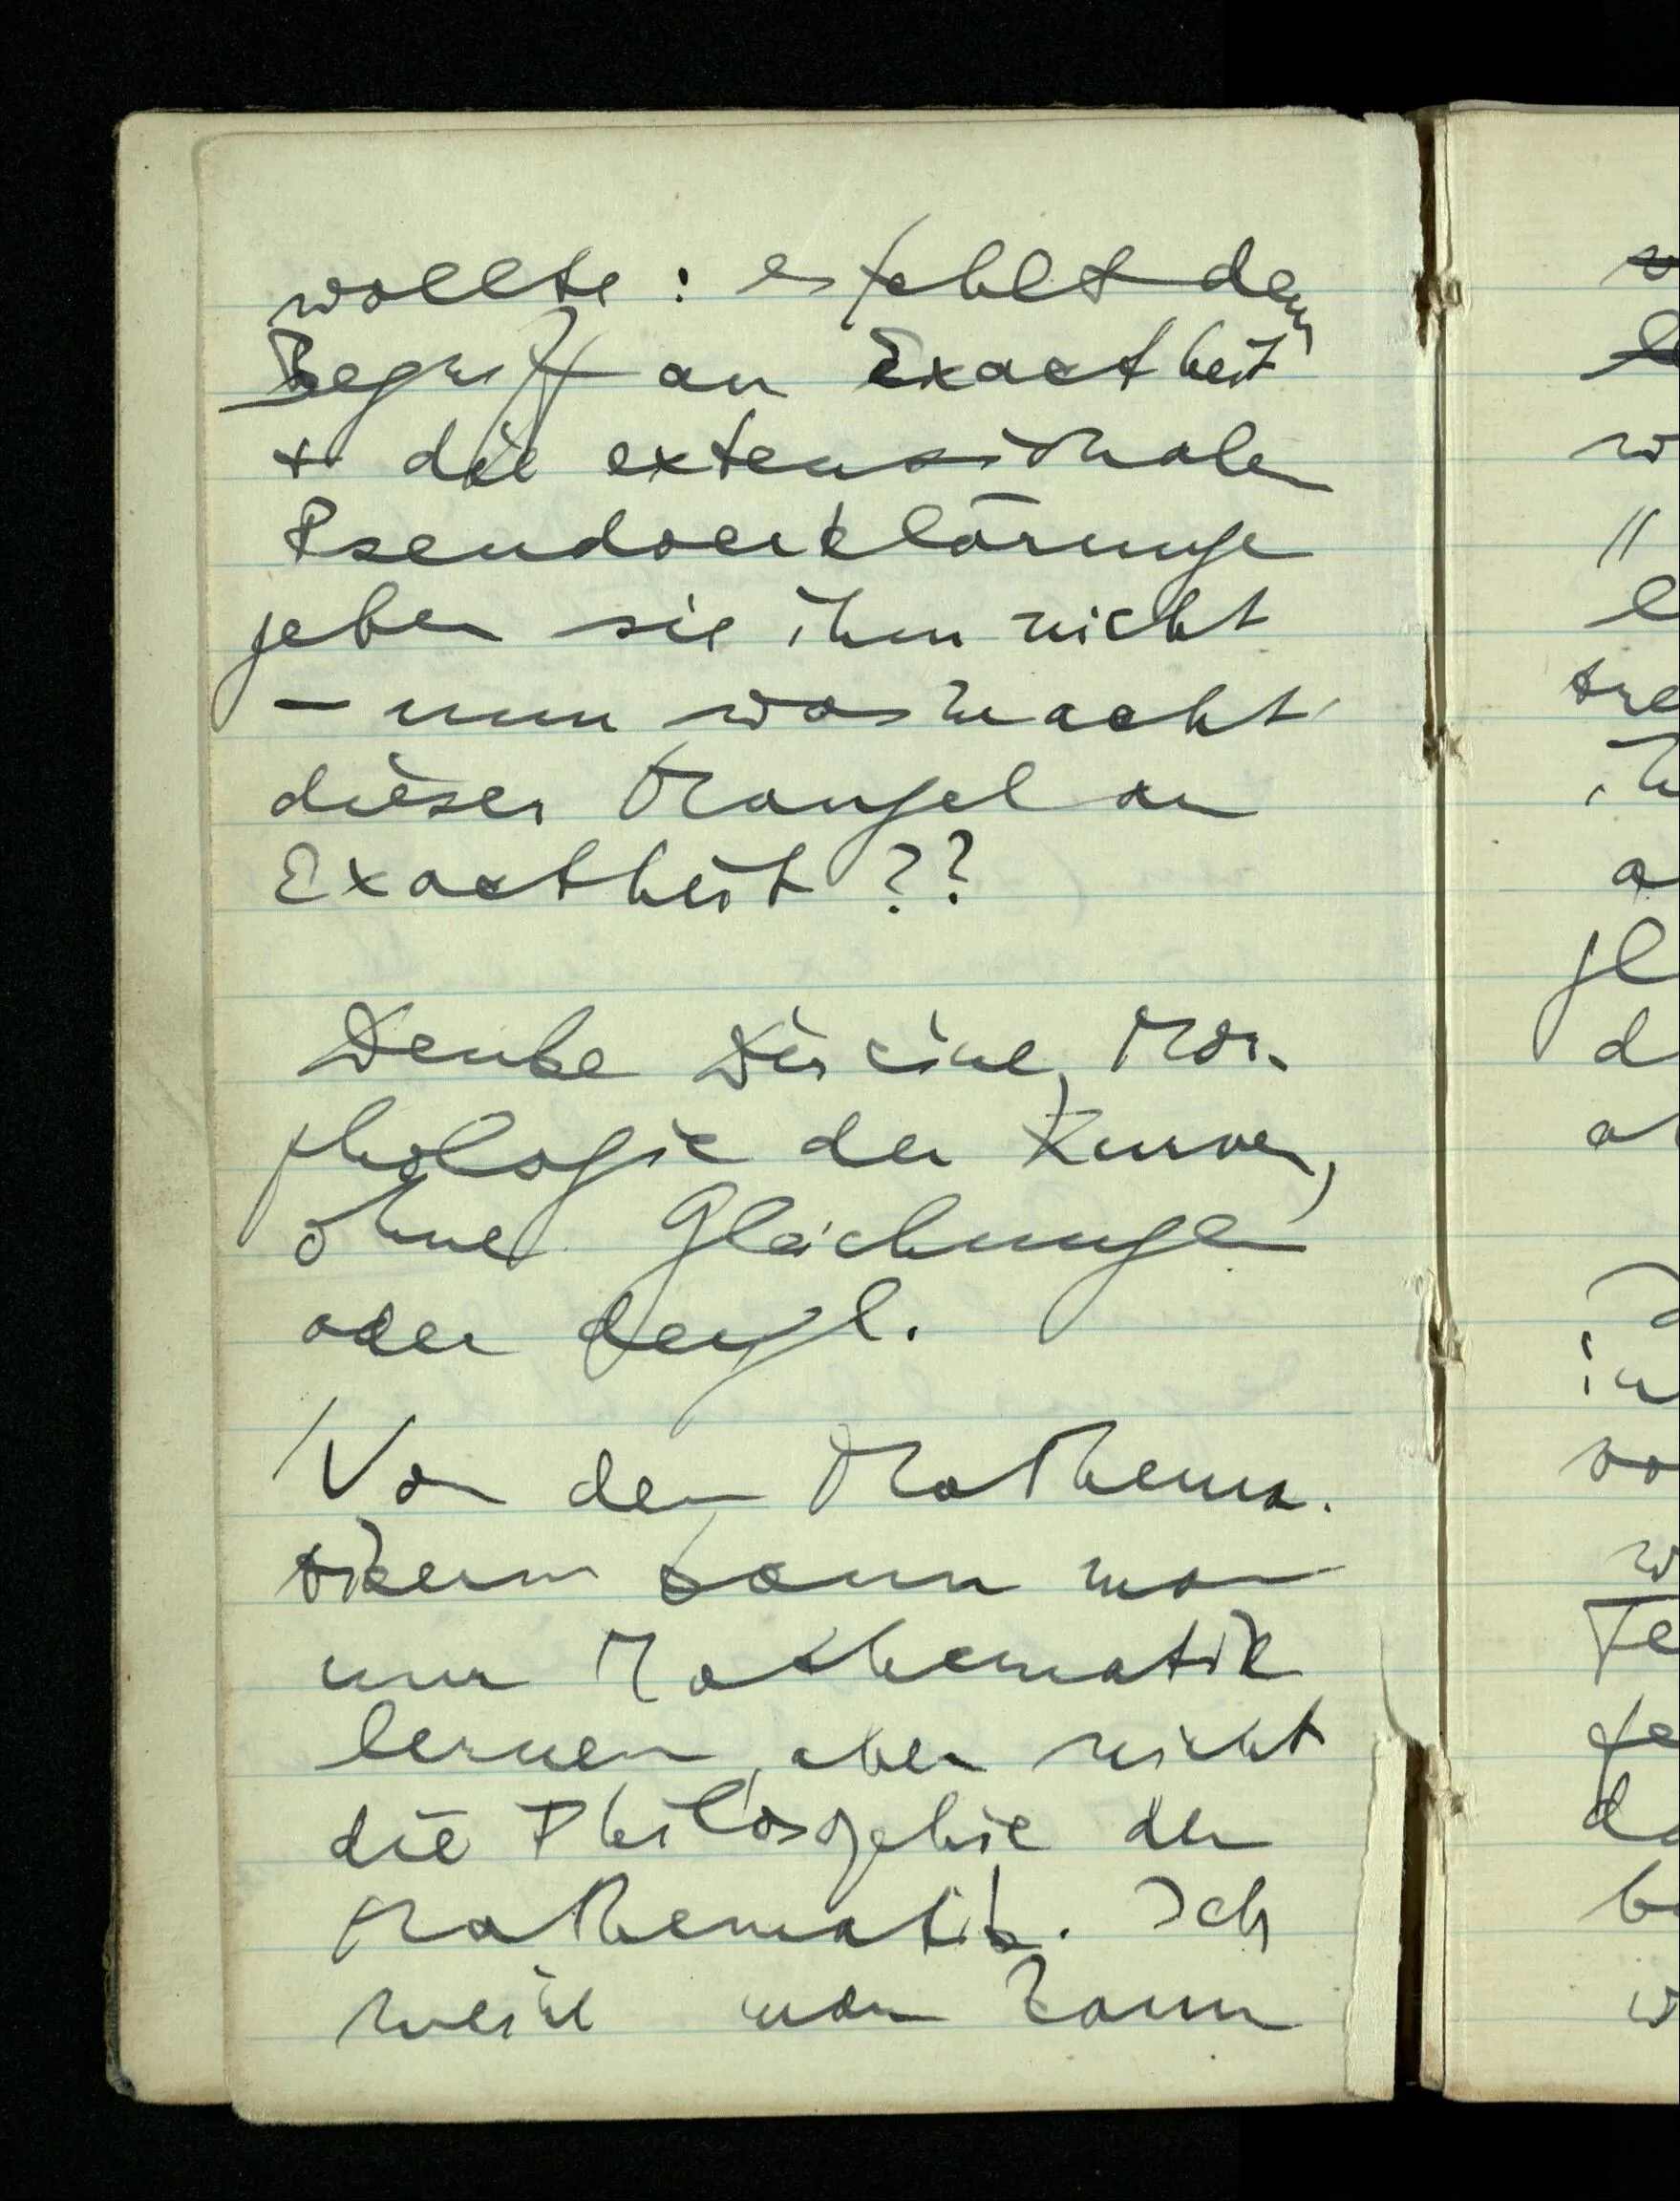 wollte : es fehlt dem
Begriff an Exactheit
+ die extensionalen
Pseudoerklärungen
geben sie ihm nicht
– nun was macht
dieser Mangel an
Exactheit ??
Denke Dir eine, Mor-
phologie der Kurven,
ohne Gleichungen
oder dergl.
/ Von den Mathema-
tikern kann man
nur Mathematik
lernen, aber nicht
die Philosophie der
Mathematik. Ich
man kann